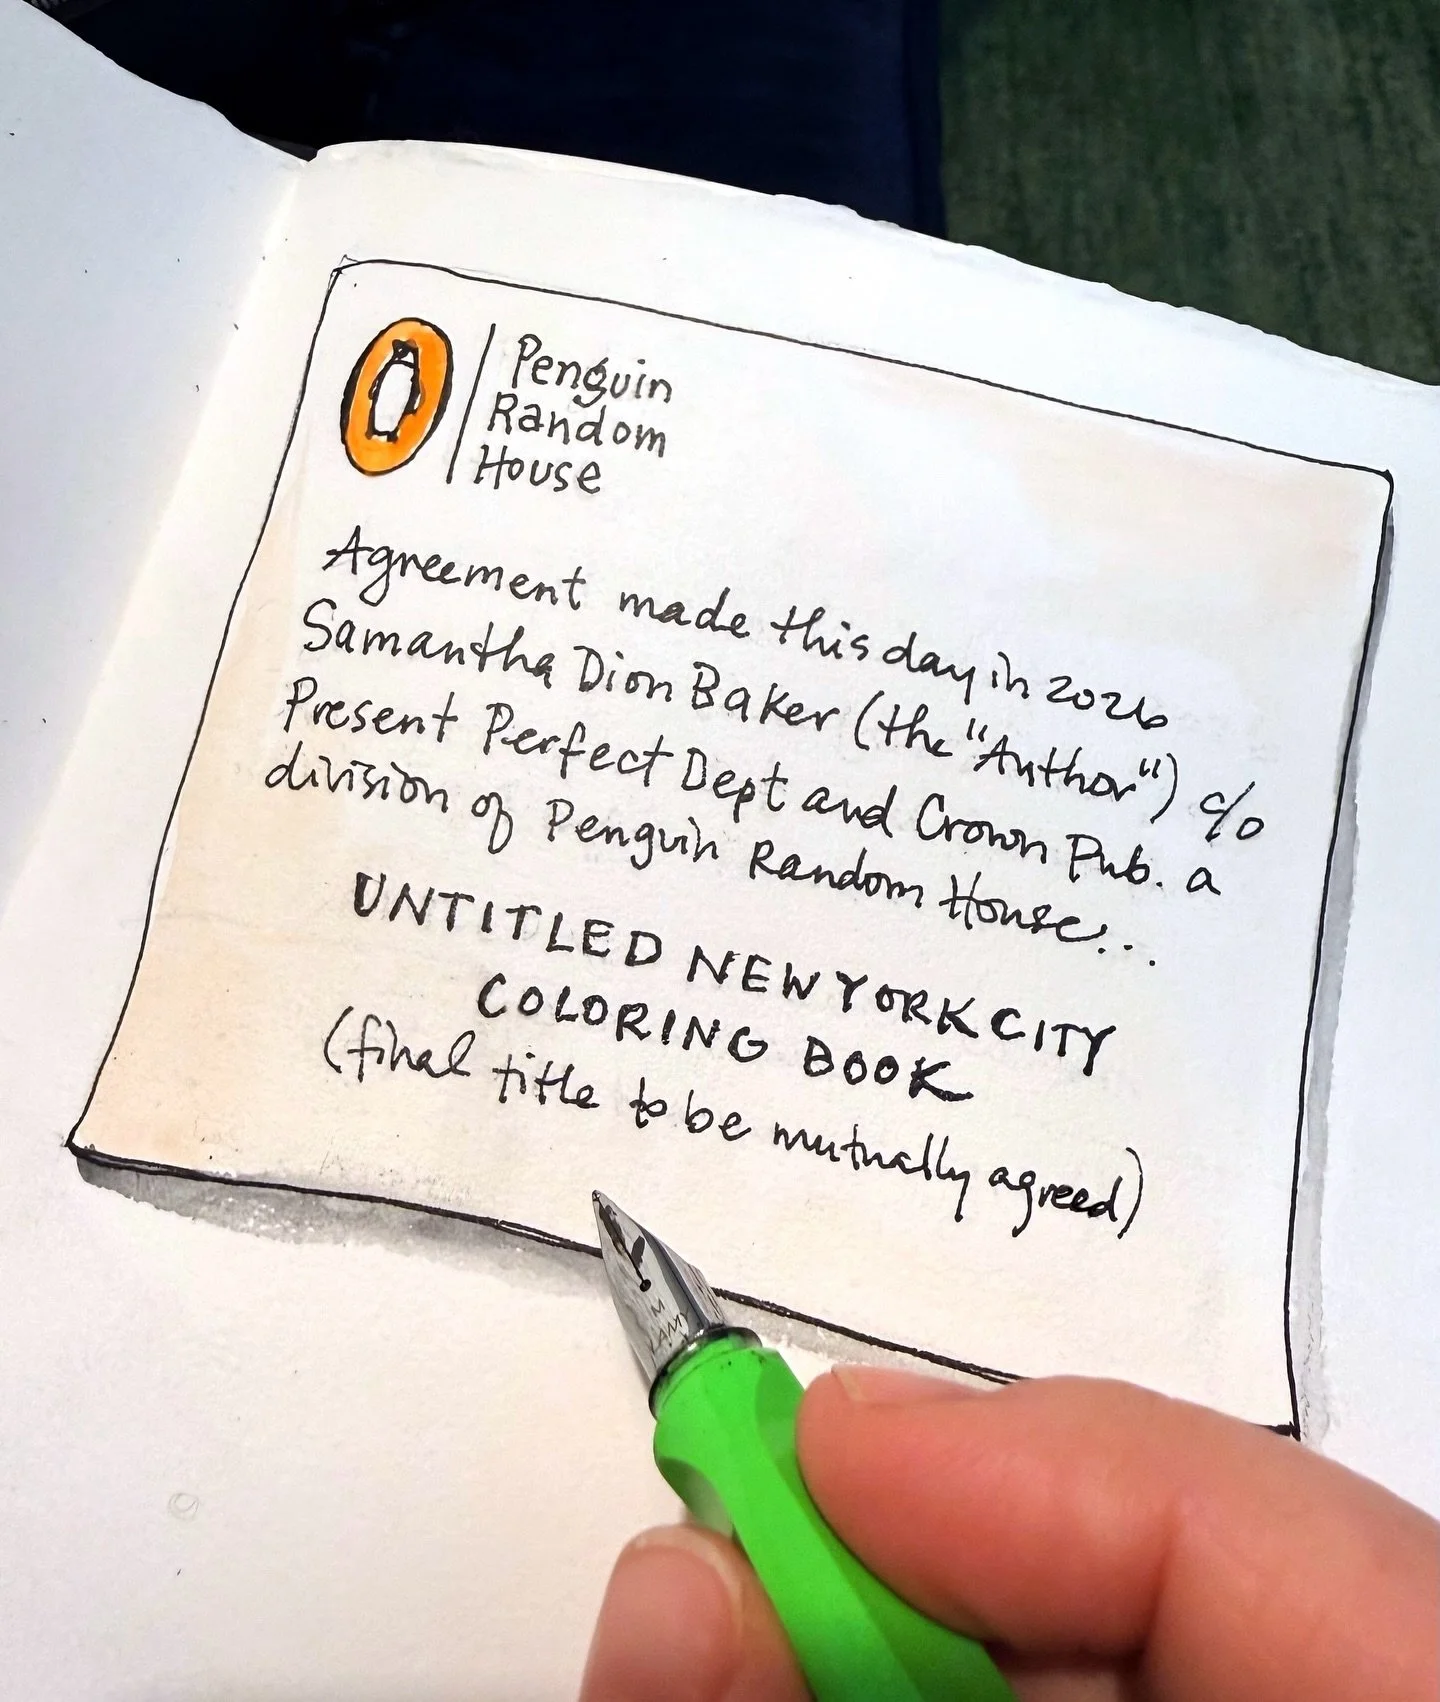 Penguin
Random
House
Agreement made this day in 2026
Samantha Dion Baker (the "Author") c/o
Present Perfect Dept and Crown Pub. a
division of Penguin Random House...
UNTITLED NEW YORK CITY
COLORING BOOK
(final title to be mutually agreed)
M
LAMY